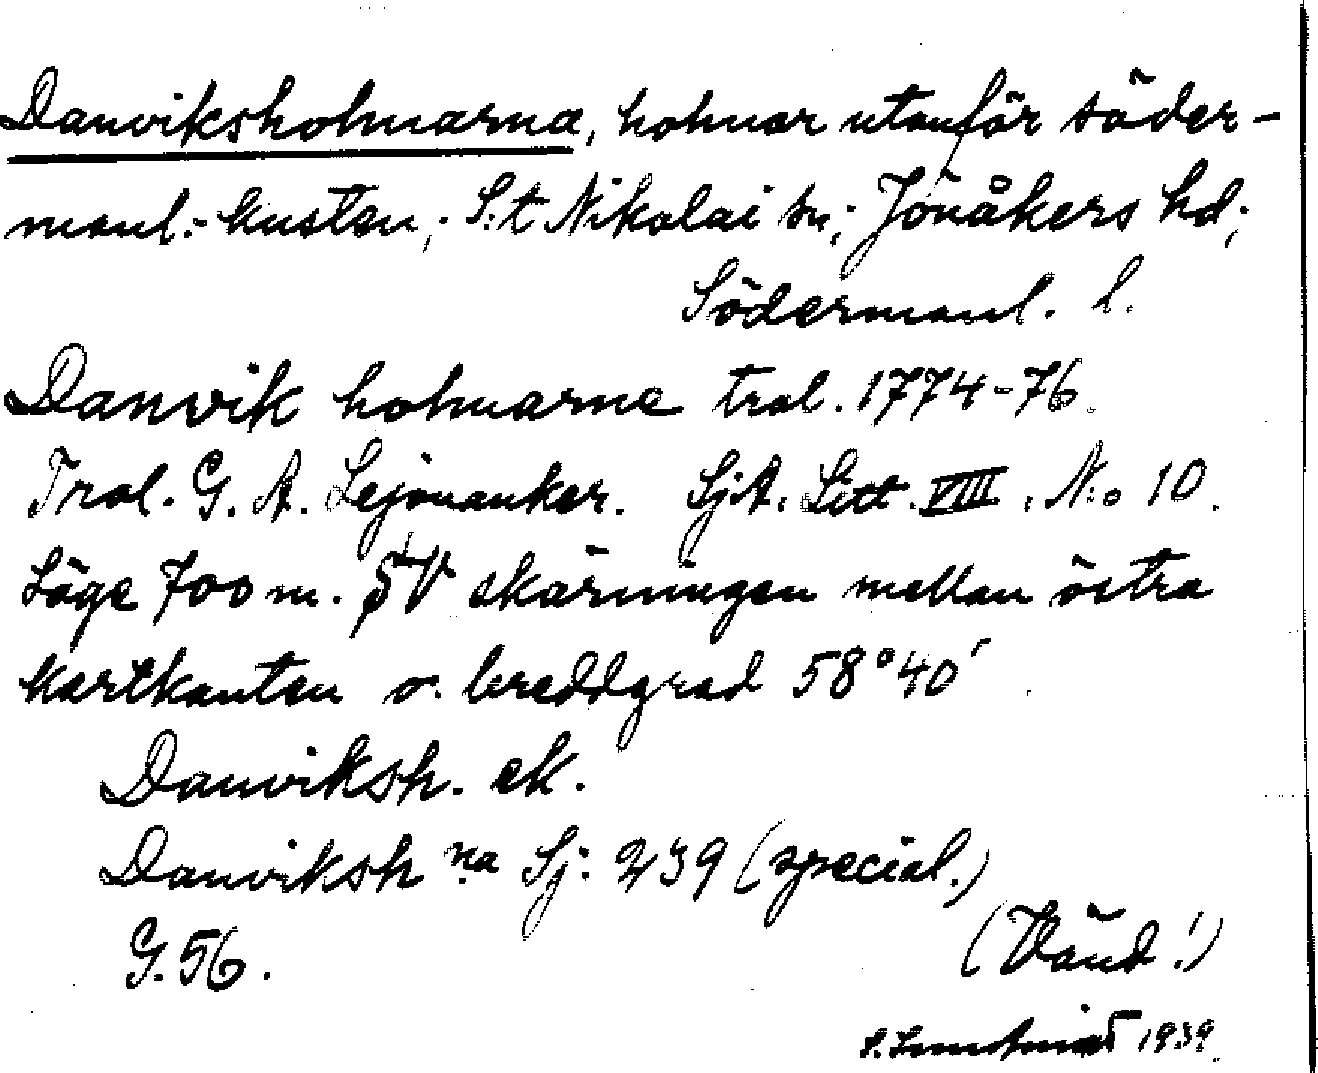 Danviksholmarna, holmar utanför söder-
manl:-kusten; S:t Nikolai sn; Jönåkers hd;
Södermanl. l.
Danvik holmarne trol. 1774-76.
Trol. G. A. Lejonanker. SjA. Litt. VIII. N:o 10.
Läge 700 m. SV skärningen mellan östra
kartkanten o. breddgrad 58°40′
Danviksh. ek.
Danviksh na Sj: 239 (special.)
G. 56.
(Vänd!)
1939.